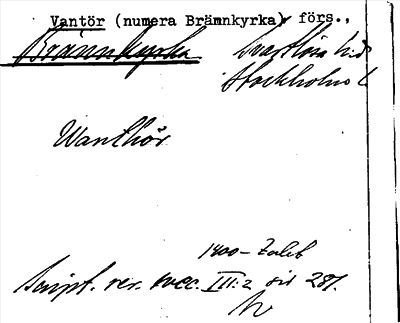 Vantör (numera Brämnkyrka) förs.,
Brännkyrka Svartlösa hd.
Stockholms l
Wanthör
1400-talet
Script. rer. svec. III:2 sid 287.